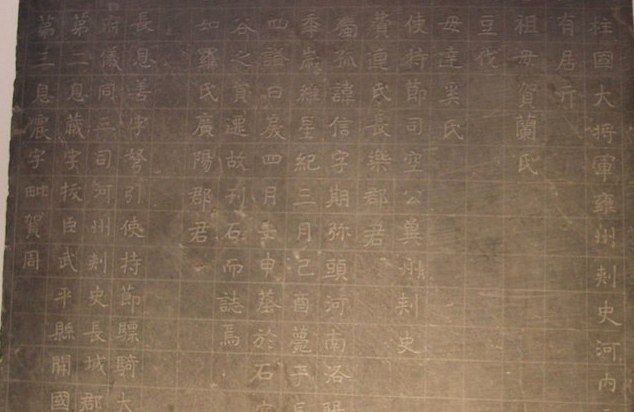 柱國大將軍雍州刺史河內
有居斤
祖母賀蘭氏
豆伐
母達奚氏
使持節司空公冀州刺史
費連氏長樂郡君
獨孤諱信字期弥頭河南洛陽
季歲維星紀三月己酉薨于長
四諡曰戾四月壬申葬於石
谷之貿遷故刊石而誌焉
如羅氏廣陽郡君
長息善字弩引使持節驃騎大
府儀同三司河州刺史長城郡
第二息藏字拔臣武平縣開國
第三息震字毗賀周